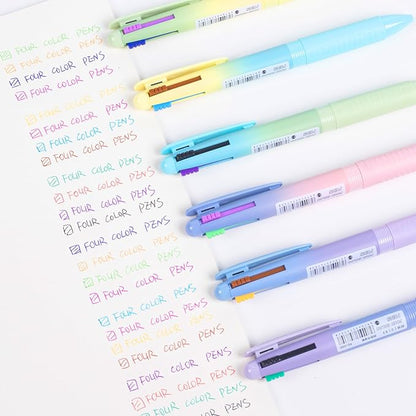 FOUR COLOR PENS
FOUR COLOR PENS
FOUR COLOR PENS
FOUR COLOR PENS
FOUR COLOR PENS
FOUR COLOR PENS
FOUR COLOR PENS
FOUR COLOR PENS
FOUR COLOR PENS
FOUR COLOR PENS
FOUR COLOR PENS
FOUR COLOR PENS
FOUR COLOR PENS
FOUR COLOR PENS
FOUR COLOR PENS
FOUR COLOR PENS
FOUR COLOR PENS
FOUR COLOR PENS
FOUR COLOR PENS
FOUR COLOR PENS
FOUR COLOR PENS
FOUR COLOR PENS
FOUR COLOR PENS
FOUR COLOR PENS